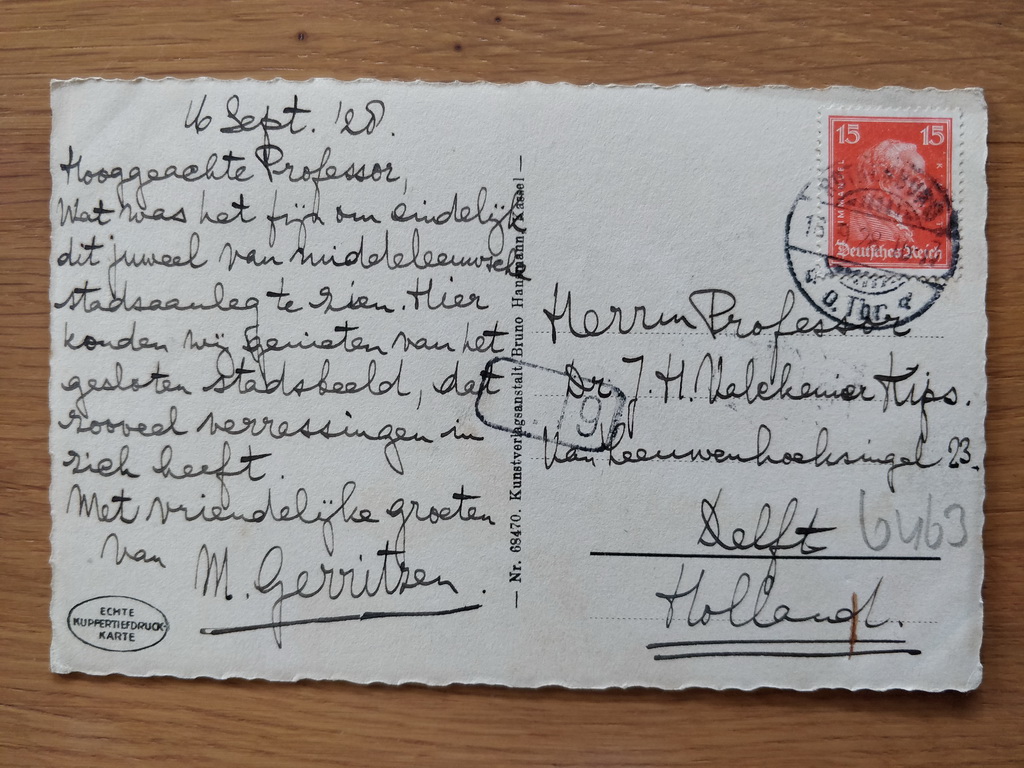 16 Sept. '28.
Hooggeachte Professor,
Wat was het fijn om eindelijk
dit juweel van middeleeuwsche
stadsaanleg te zien. Hier
konden wij genieten van het
gesloten stadsbeeld, dat
zooveel verrassingen in
zich heeft.
Met vriendelijke groeten
van
M. Gerritsen.
ECHTE
KUPFERTIEFDRUCK-
KARTE
— Nr. 68470. Kunstverlagsanstalt Bruno Hansmann, Cassel —
15 15
IMMANUEL
Deutsches Reich
o. Tbr. d
Herrn Professor
Dr. J. H. Valckenier Kips.
van Leeuwenhoeksingel 23.
Delft
Holland.
9
6463